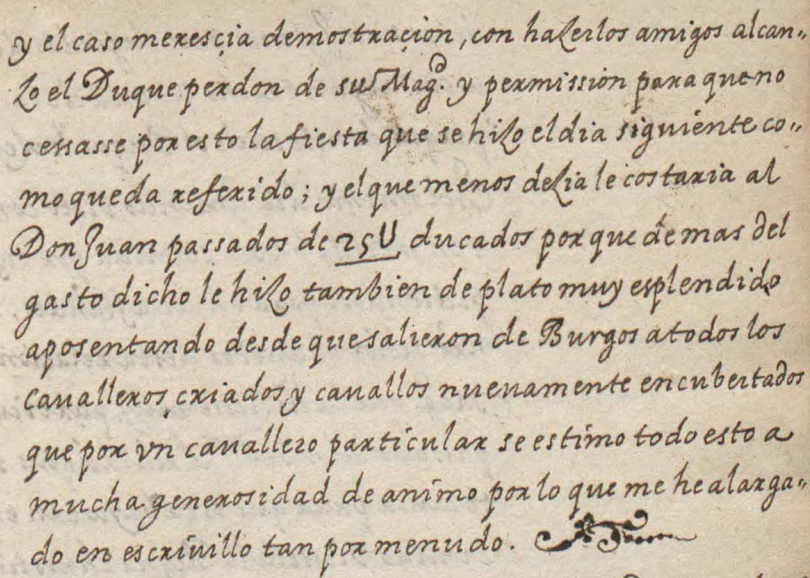 y el caso meresçia demostraçion, con hazerlos amigos alcan-
zo el Duque perdon de su Mag.d y permission para que no
cessasse por esto la fiesta que se hizo el dia siguiente co-
mo queda referido; y el que menos dezia le costaria al
Don Juan passados de 25U ducados porque demas del
gasto dicho le hizo tambien de plato muy esplendido
aposentando desde que salieron de Burgos a todos los
cavalleros, criados, y cavallos nuevamente encubertados
que por vn cavallero particular se estimo todo esto a
mucha generosidad de animo por lo que me he alarga-
do en escrivillo tan por menudo.